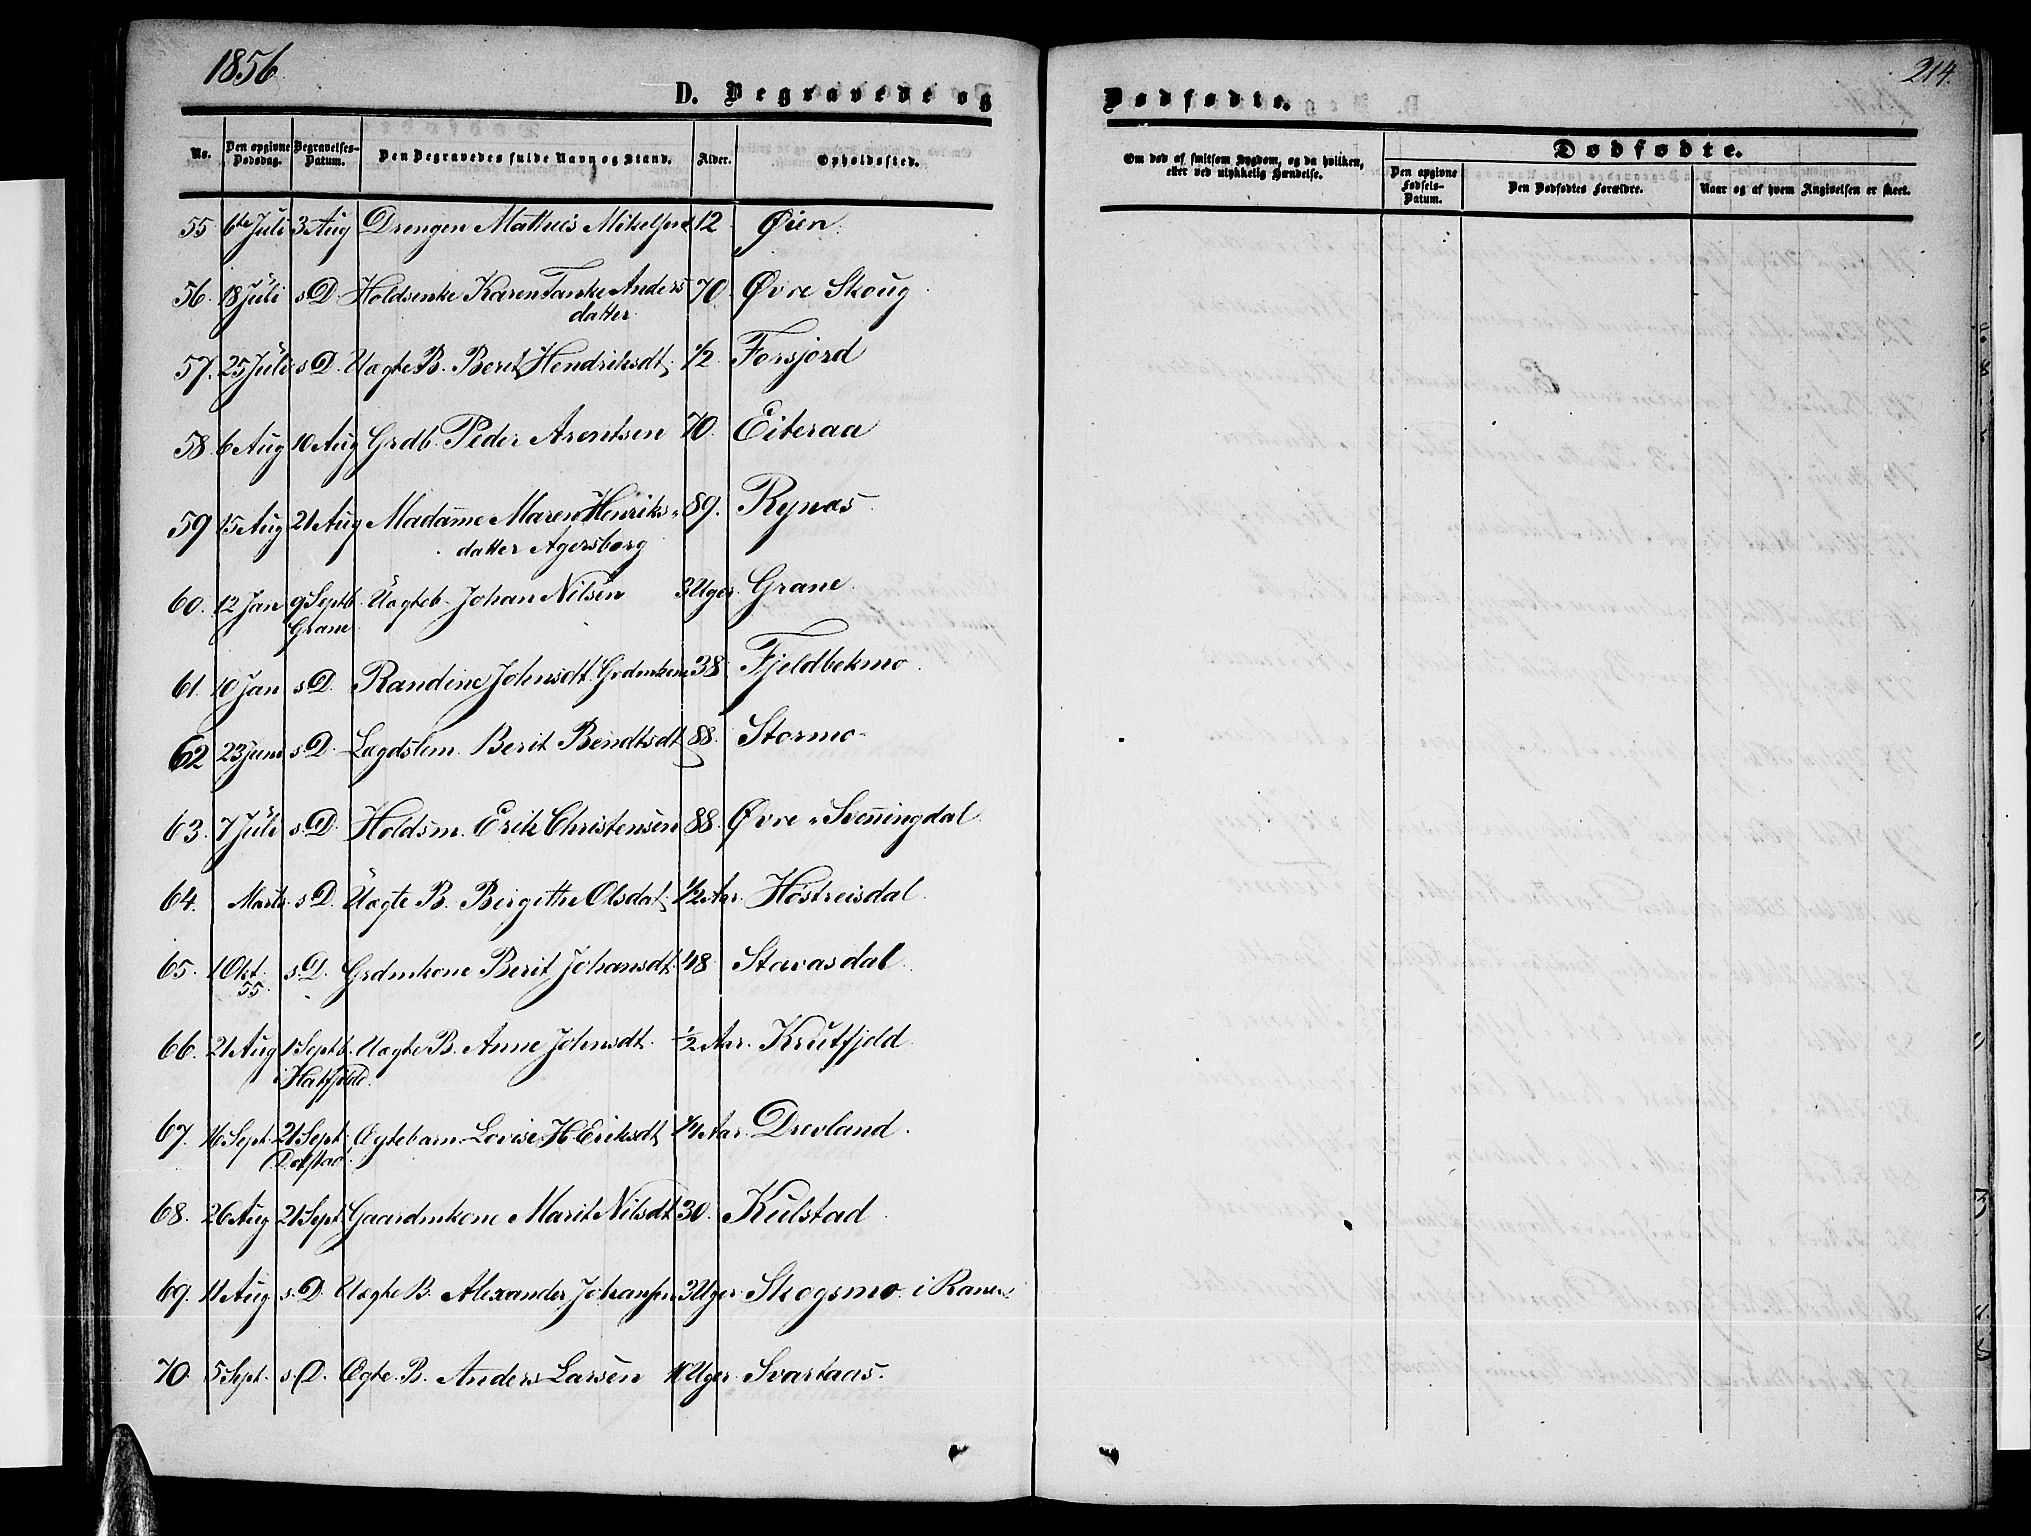 1856
214.
D. Begravede og
Dødfødte.
No.
Den opgivne Dødsdag.
Begravelses-Datum.
Den Begravedes fulde Navn og Stand.
Alder.
Opholdssted.
Om død af smitsom Sygdom, og da hvilken,
eller ved ulykkelig Hændelse.
Dødfødte.
Den opgivne Fødsels-Datum.
Den Dødfødtes Forældre.
Naar og af hvem Angivelsen er skeet.
55 6te Juli 3 Aug Drengen Mathæis Mikelsen 12 Øien
56. 18 Juli s.D. Holdsenke Karen Tanke Anders 70. Øvre Skoug
datter
57. 25 Juli s.D. Uægte B. Berit Hendriksdt. 1/2 Forsjord
58. 6 Aug 10 Aug Grdb. Peder Arentsen 70. Eiteraa
59 15 Aug 21 Aug Madame Maren Henriks- 89. Rynæs
datter Agersborg
60. 12 Jan 9 Septb. Uægteb. Johan Nilsen 3 Uger. Grane
Grane
61. 10 Jan s.D. Randine Johnsdt. Grdmkone 38 Fjeldbekmo
62 23 Juni s.D. Lægdslem. Berit Bendtsdt 88. Stormo
63. 7 Juli s.D. Holdsm. Erik Christensen 88. Øvre-Svenningdal
64. Marts. s.D. Uægte B. Bergitthe Olsdat. 1/2 Aar. Hostreisdal.
65. 1 Okt. s.D. Grdmkone Berit Johansdt. 48 Stavasdal
55.
66. 21 Aug 1 Septb. Uægte B. Anne Johnsdt. 1/2 Aar. Krutfjeld
i Hatfjeld.
67. 16 Sept. 21 Sept. Ægtebarn Lovise H Eriksdt. 1/4 Aar. Drevland.
Dolstad.
68. 26 Aug 21 Sept. Gaardmkone Marit Nilsdt 30. Kulstad
69. 11 Aug s.D. Uægte B. Alexander Johansen 3 Uger Skogsmo i Ranen
70. 5 Sept. s.D. Ægte. B. Anders Larsen 10 Uger Svartaas.